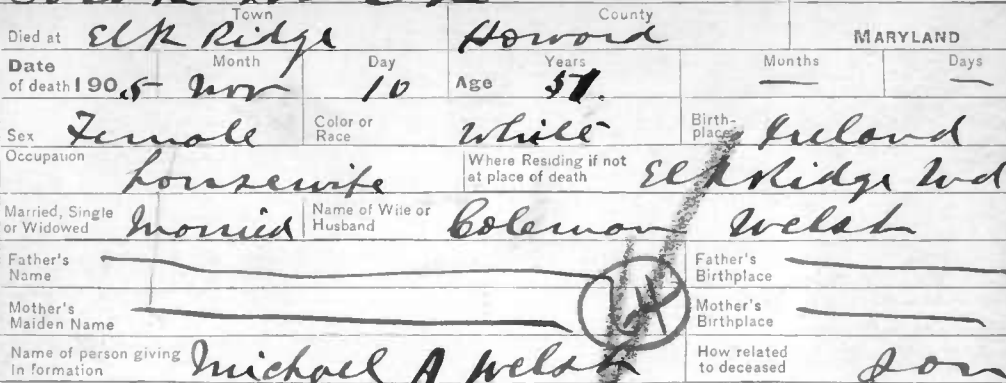 Town County
Died at Elk Ridge Howard MARYLAND
Date of death 190 5 Month Nov Day 10 Age Years 57. Months — Days —
Sex Female Color or Race White Birthplace Ireland
Occupation housewife Where Residing if not at place of death Elk Ridge Md
Married, Single or Widowed Married Name of Wife or Husband Coleman Welsh
Father's Name Father's Birthplace
Mother's Maiden Name 64 Mother's Birthplace
Name of person giving Information Michael A Welsh How related to deceased Son